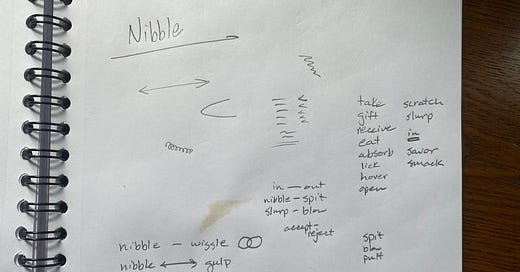 Nibble
take scratch
gift slurp
receive in
eat
absorb savor
lick smack
hover
open
in — out
nibble – spit
slurp – blow
accept – reject
spit
blow
puff
nibble – wiggle
nibble ↔ gulp